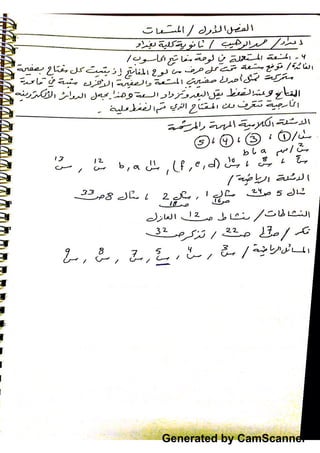 الفصل الأول / المتسعات
اعداد / حمد الوهيب / ثانوية كلية بغداد
٦- المتسعة المستعملة في لوحة مفاتيح الحاسوب /
الفائدة / توضع متسعة تحت كل حرف من لوح المفاتيح إذ يثبت كل مفتاح بصفيحة
متحركة تمثل احدى صفيحتي المتسعة والصفيحة الاخرى مثبتة في قاعدة
المفتاح وعند الضغط يقل البعد وتزداد السعة وهذا يجعل الدوائر الالكترونية
الخارجية تتعرف على المفتاح الذي تم الضغط عليه
الاسئلة الكلامية المهمة والمرشحة
س١/ ① ، ③ ، ④ ، ⑤
س٢/ a b
b, a س١١ ، (f, e, d) س١٠ ، س١٢ ، س١٣
الاسئلة الرياضية /
مثال 5 ص٢٤ مثال 1 ، مثال 2 ، مثال 8 ص33
النشاطات / نشاط ص١٢ العازل
فكر / ص١٧ ص٢٢ / تذكر ص32
المسائل الرياضية / س٣ ، س٤ ، س5 ، س7 ، س8 ، س9
Generated by CamScanner